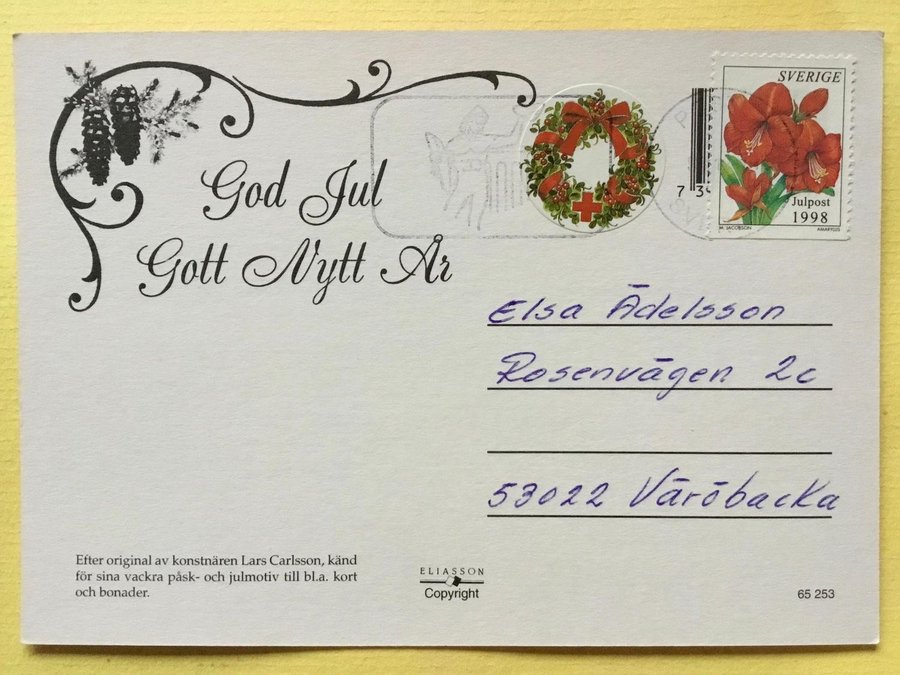 God Jul
Gott Nytt År
SVERIGE
Julpost
1998
M. JACOBSON AMARYLLIS
73
Elsa Ādelsson
Rosenvāgen 2c
53022 Vārōbacka
Efter original av konstnären Lars Carlsson, känd
för sina vackra påsk- och julmotiv till bl.a. kort
och bonader.
ELIASSON
Copyright
65 253